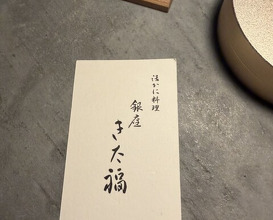 活かに料理
銀座
きた福